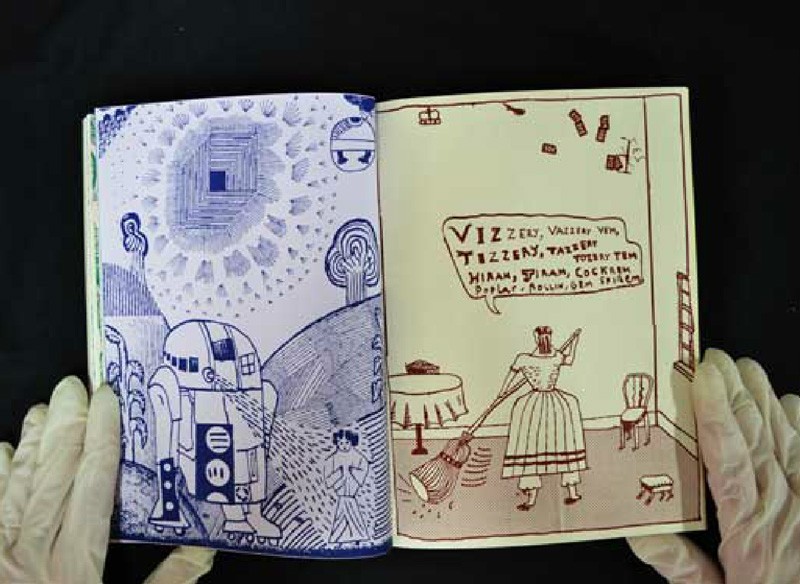 VIZZERY, VAZZERY VEM,
TIZZERY, TAZZERY
TOZERY TEM
HIRAM, JIRAM, COCKREM
Poplar, ROLLIN, GEM